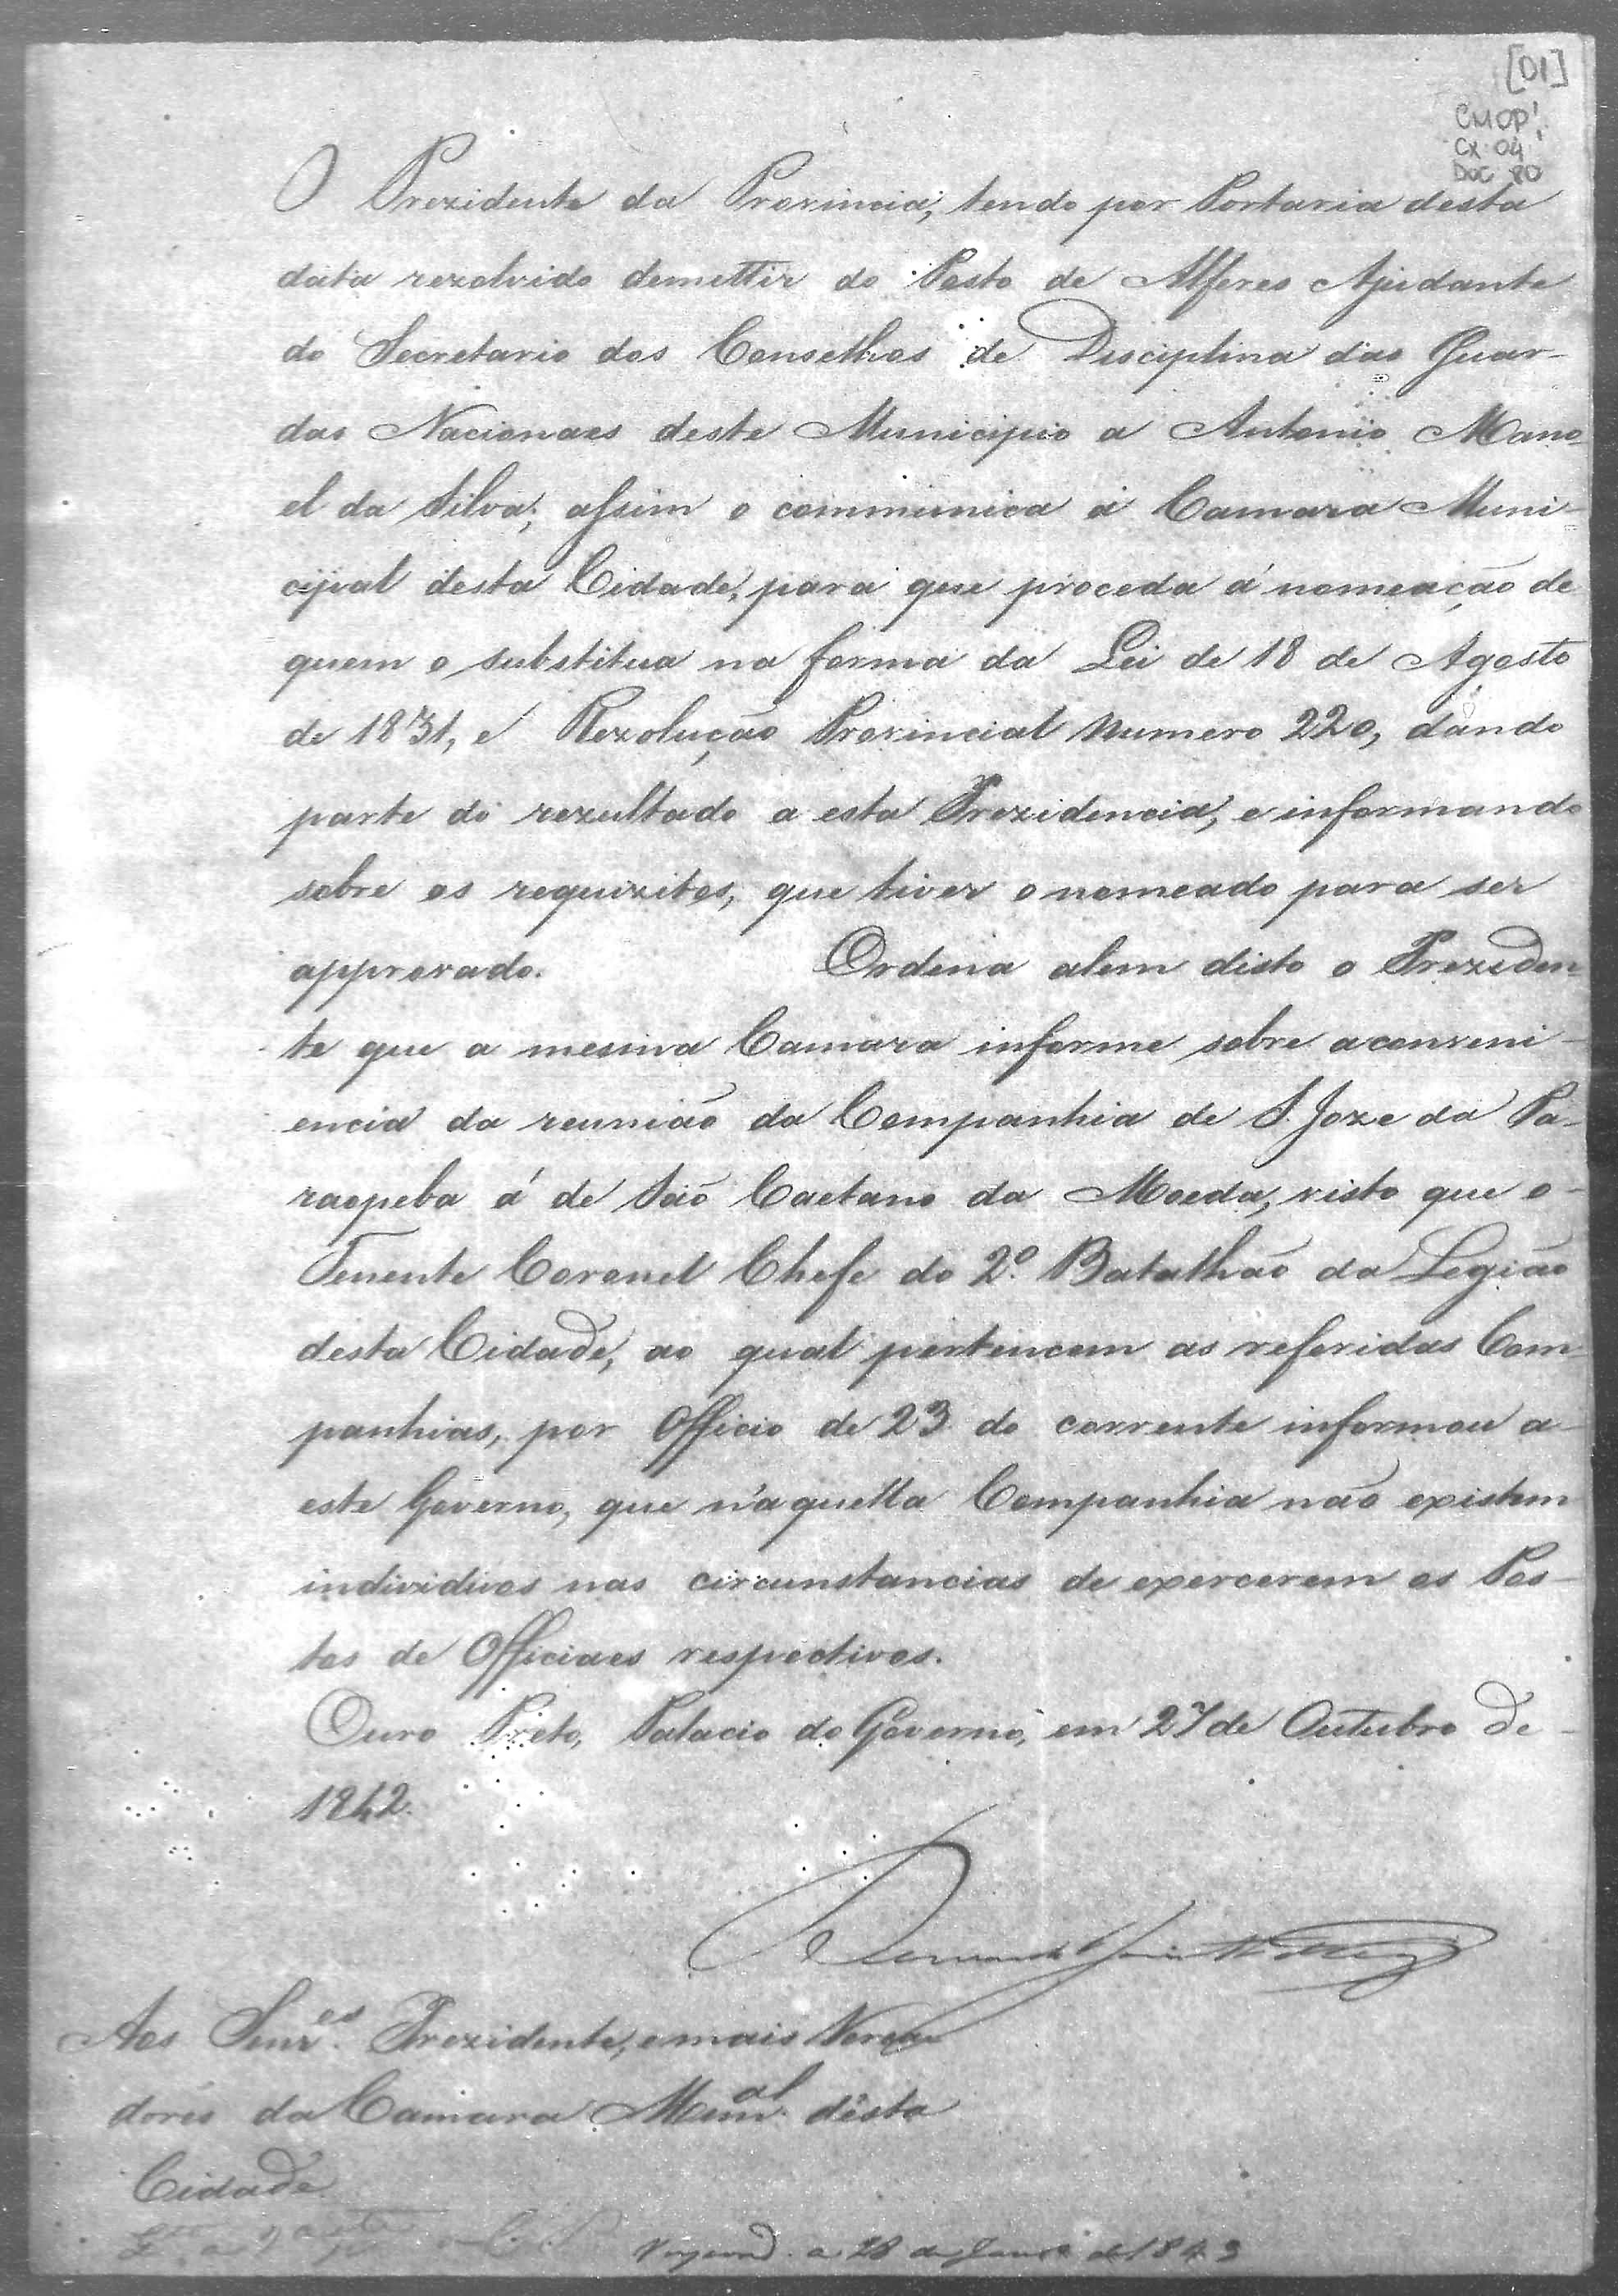 [01]
CMOP
CX. 04
DOC 80
O Prezidente da Provincia, tendo por Portaria desta
data rezolvido demettir do Posto de Alferes Ajudante
do Secretario dos Conselhos de Disciplina das Guar-
das Nacionaes deste Municipio a Antonio Mano-
el da Silva; assim o communica á Camara Muni-
cipal desta Cidade, para que proceda á nomeação de
quem o substitua na forma da Lei de 18 de Agosto
de 1831, e Rezolução Provincial numero 220, dando
parte do rezultado a esta Prezidencia, e informando
sobre os requizitos, que tiver o nomeado para ser
approvado. Ordena alem disto o Preziden-
te que a mesma Camara informe sobre a conveni-
encia da reunião da Companhia de S. Joze da Pa-
raopeba á de São Caetano da Moeda, visto que o
Tenente Coronel Chefe do 2º. Batalhão da Legião
desta Cidade, ao qual pertencem as referidas Com-
panhias, por Officio de 23 do corrente informou a
este Governo, que n'aquella Companhia não existem
individuos nas circunstancias de exercerem os Pos-
tos de Officiaes respectivos.
Ouro Preto, Palacio do Governo, em 27 de Outubro de
1842.
Aos Senres. Prezidente, e mais Verea
dores da Camara Munal. desta
Cidade
a 28 de de 1843